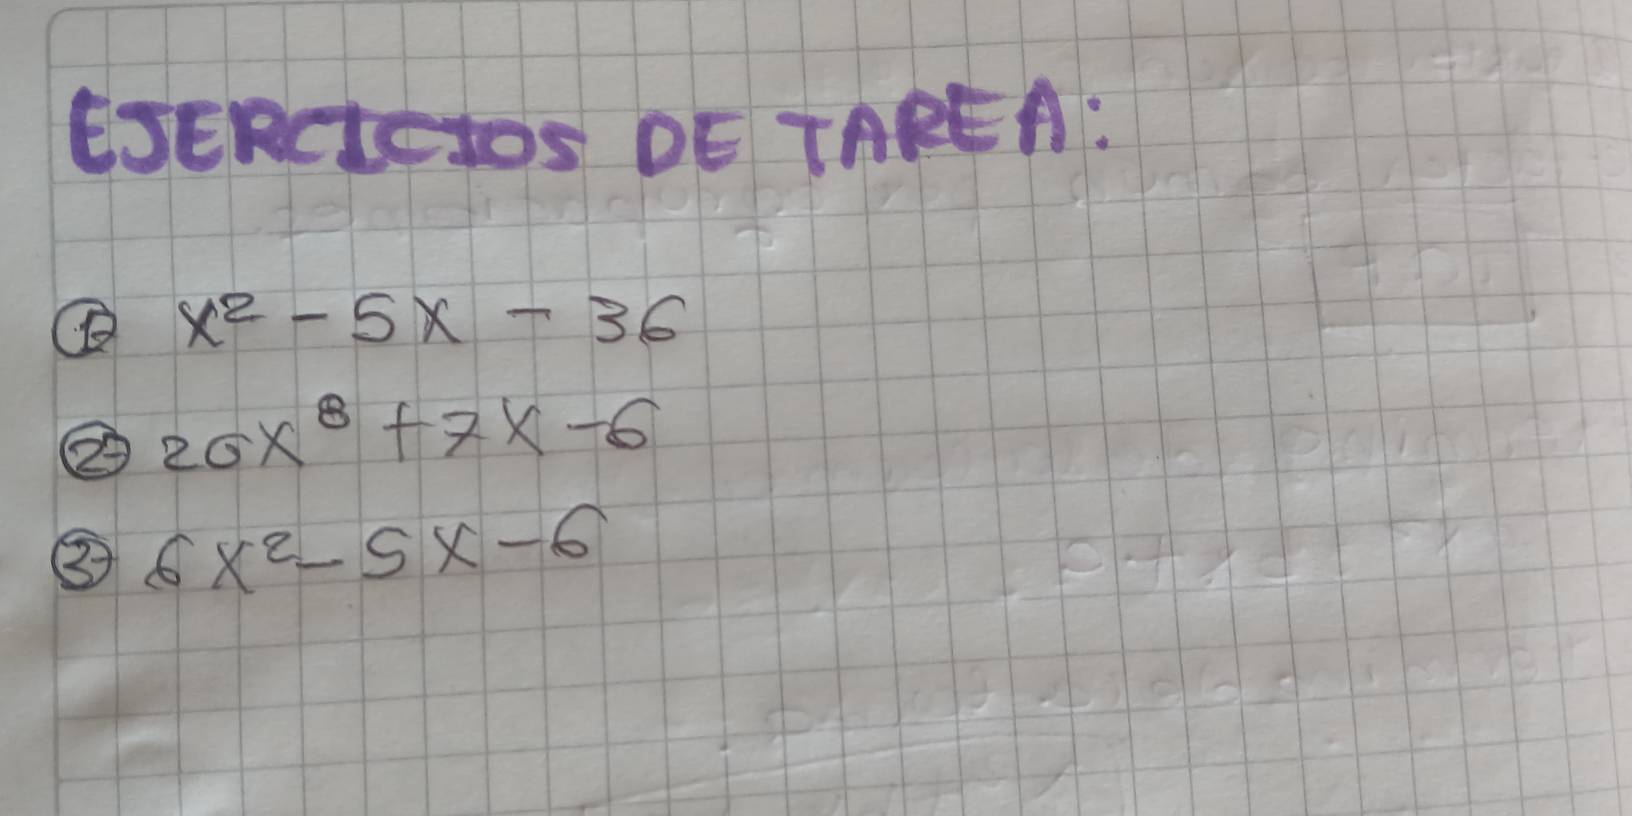 EJERCICIOS DE TAREA:
1) x² - 5x - 36
2) 20x⁸ + 7x - 6
3) 6x² - 5x - 6